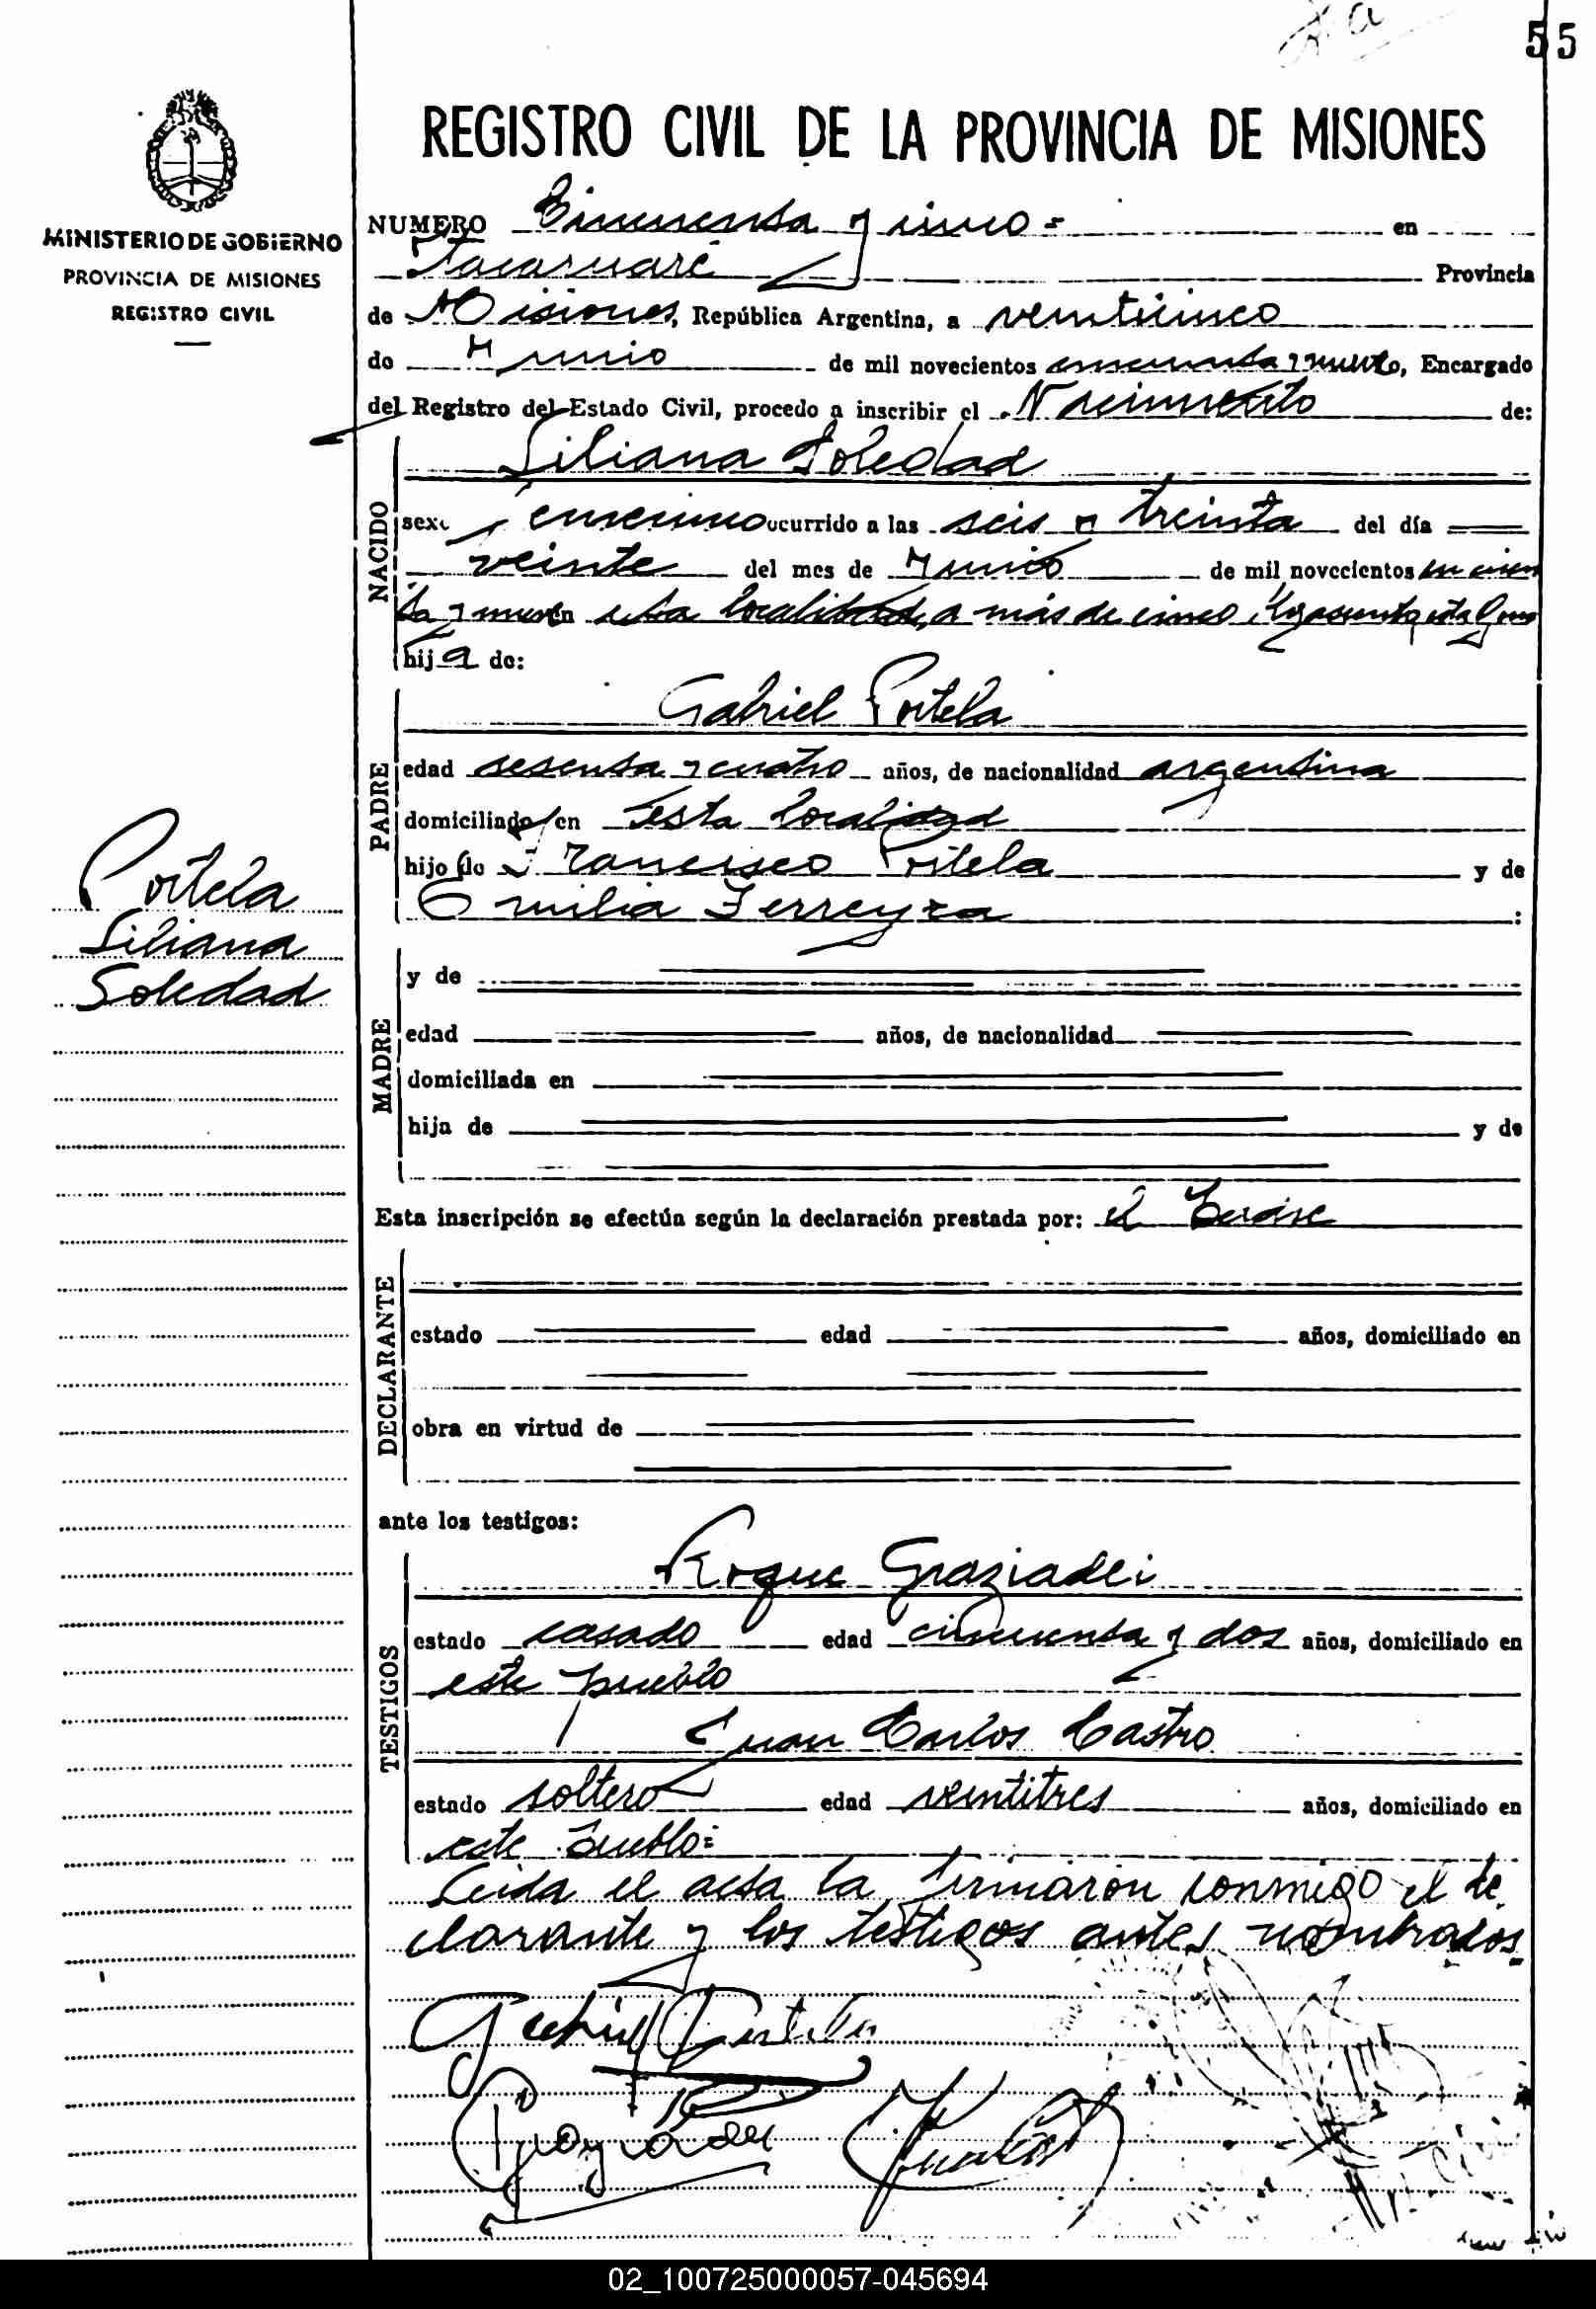 55
REGISTRO CIVIL DE LA PROVINCIA DE MISIONES
MINISTERIO DE GOBIERNO
PROVINCIA DE MISIONES
REGISTRO CIVIL
NUMERO Cincuenta y cinco = en
Tacaruaré Provincia
de Misiones, República Argentina, a veinticinco
de Junio de mil novecientos cincuenta y nueve, Encargado
del Registro del Estado Civil, procedo a inscribir el Nacimiento de:
NACIDO
Liliana Soledad
sexo femenino ocurrido a las seis y treinta del día
veinte del mes de Junio de mil novecientos cincuen
ta y nueve en esta localidad, a más de cinco
hija de:
PADRE
Gabriel Portela
edad sesenta y cuatro años, de nacionalidad argentina
domiciliado en esta localidad
hijo de Francisco Portela y de
Emilia Ferreyra :
Portela
Liliana
Soledad
MADRE
y de
edad años, de nacionalidad
domiciliada en
hija de y de
Esta inscripción se efectúa según la declaración prestada por: el Padre
DECLARANTE
estado edad años, domiciliado en
obra en virtud de
ante los testigos:
TESTIGOS
Roque Graziadei
estado casado edad cincuenta y dos años, domiciliado en
este pueblo
Juan Carlos Castro
estado soltero edad veintitres años, domiciliado en
este Pueblo=
Leida el acta la firmaron conmigo el de
clarante y los testigos antes nombrados
Gabriel Portela
02_100725000057-045694